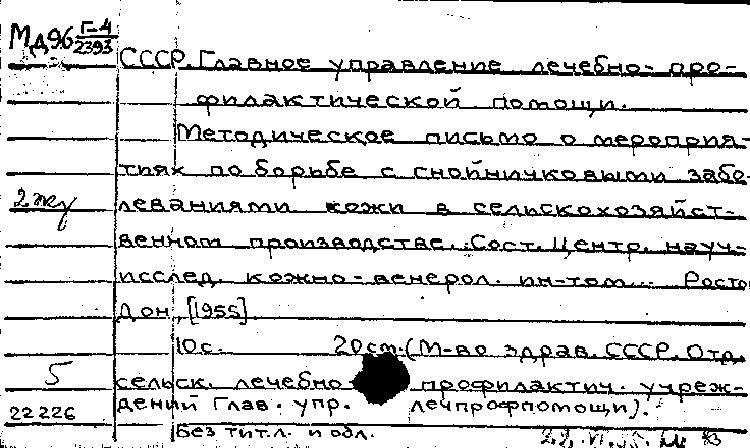 Мд96 Г-4
2393
СССР. Главное управление лечебно-про-
филактической помощи.
Методическое письмо о мероприя-
тиях по борьбе с гнойничковыми забо-
2 экз
леваниями кожи в сельскохозяйст-
венном производстве. Сост. Центр. науч-
исслед. кожно-венерол. ин-том... Росто
Дон, [1955].
10с. 20см. (М-во здрав. СССР. Отд.
5
сельск. лечебно профилактич. учреж-
22226
дений Глав. упр. лечпрофпомощи).
Без тит. л. и обл.